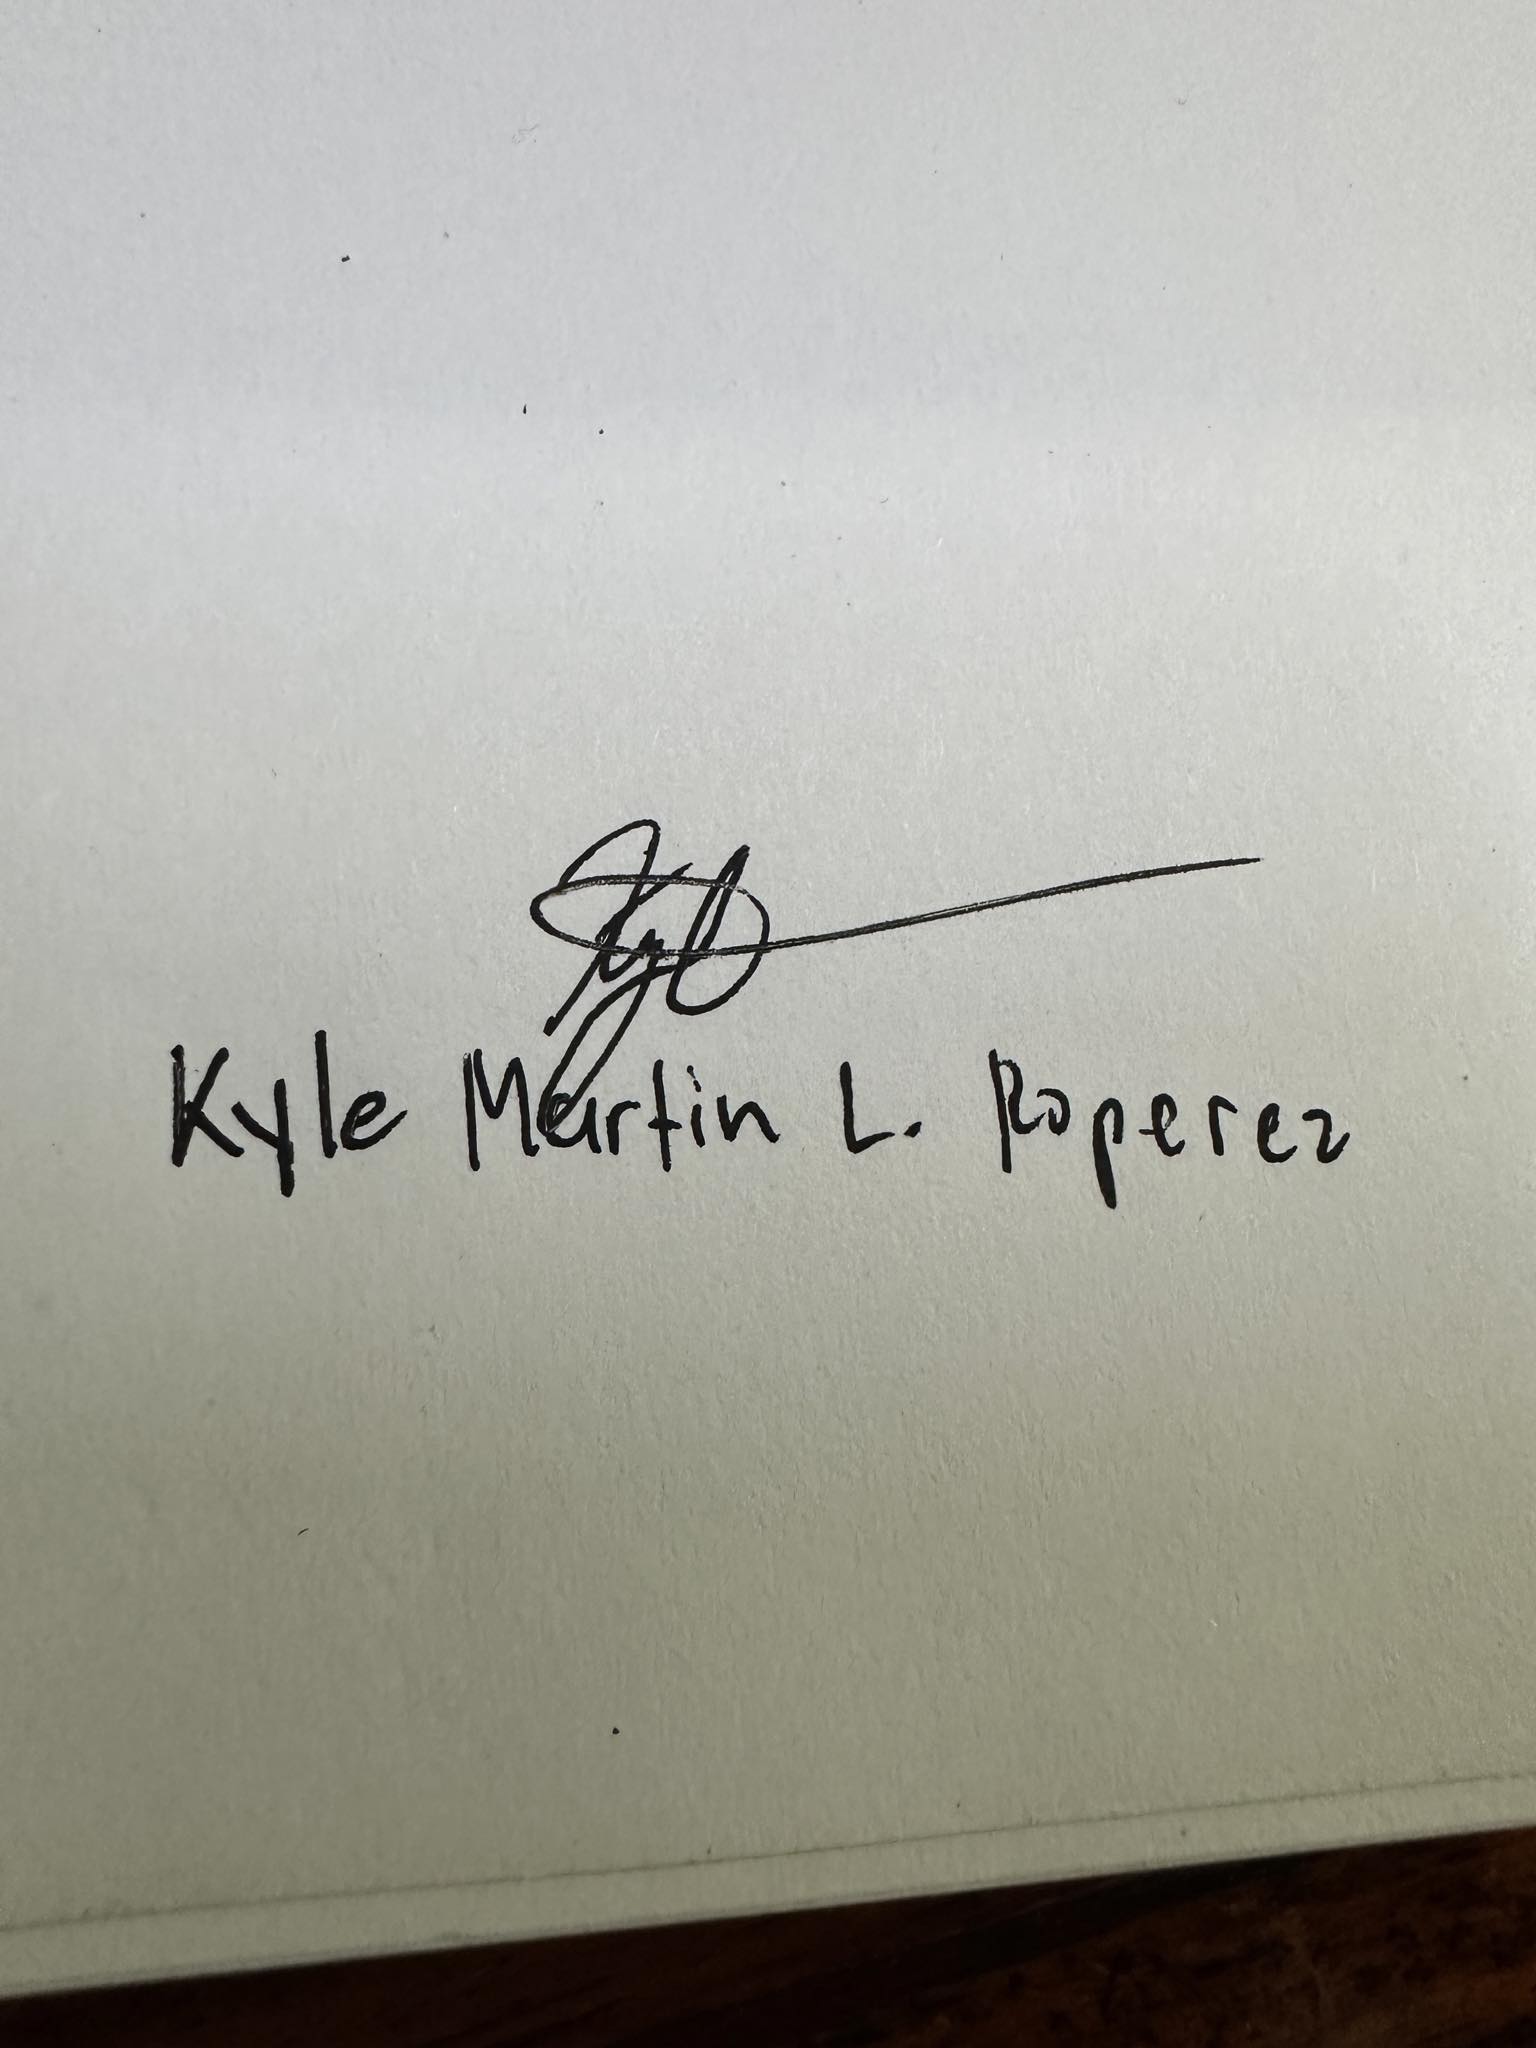 Kyle Martin L. Roperez